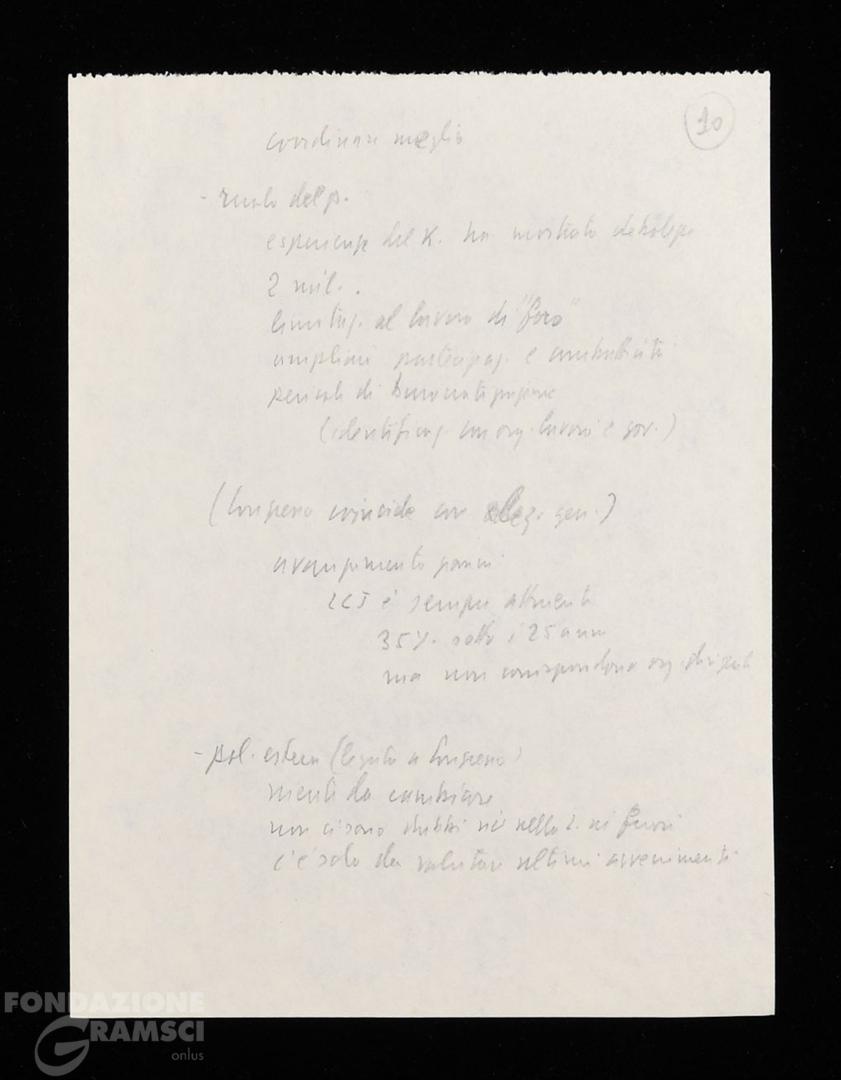 10
coordinare meglio
- ruolo del p.
esperienza del K. ha mostrato debolezze
2 mil.
limitaz. al lavoro di "foro"
ampliare partecipaz. e
pericoli di burocratizzazione
(identificaz. con org. lavoro e gov.)
(Congresso coincide con elez. gen.)
avanzamento giovani
LCJ è sempre
35% sotto i 25 anni
ma non corrispondono org. dirigenti
- pol. estera (legata a Congresso)
niente da cambiare
non ci sono dubbi nè nella L. nè fuori
c'è solo da valutare ultimi avvenimenti
FONDAZIONE
GRAMSCI
onlus